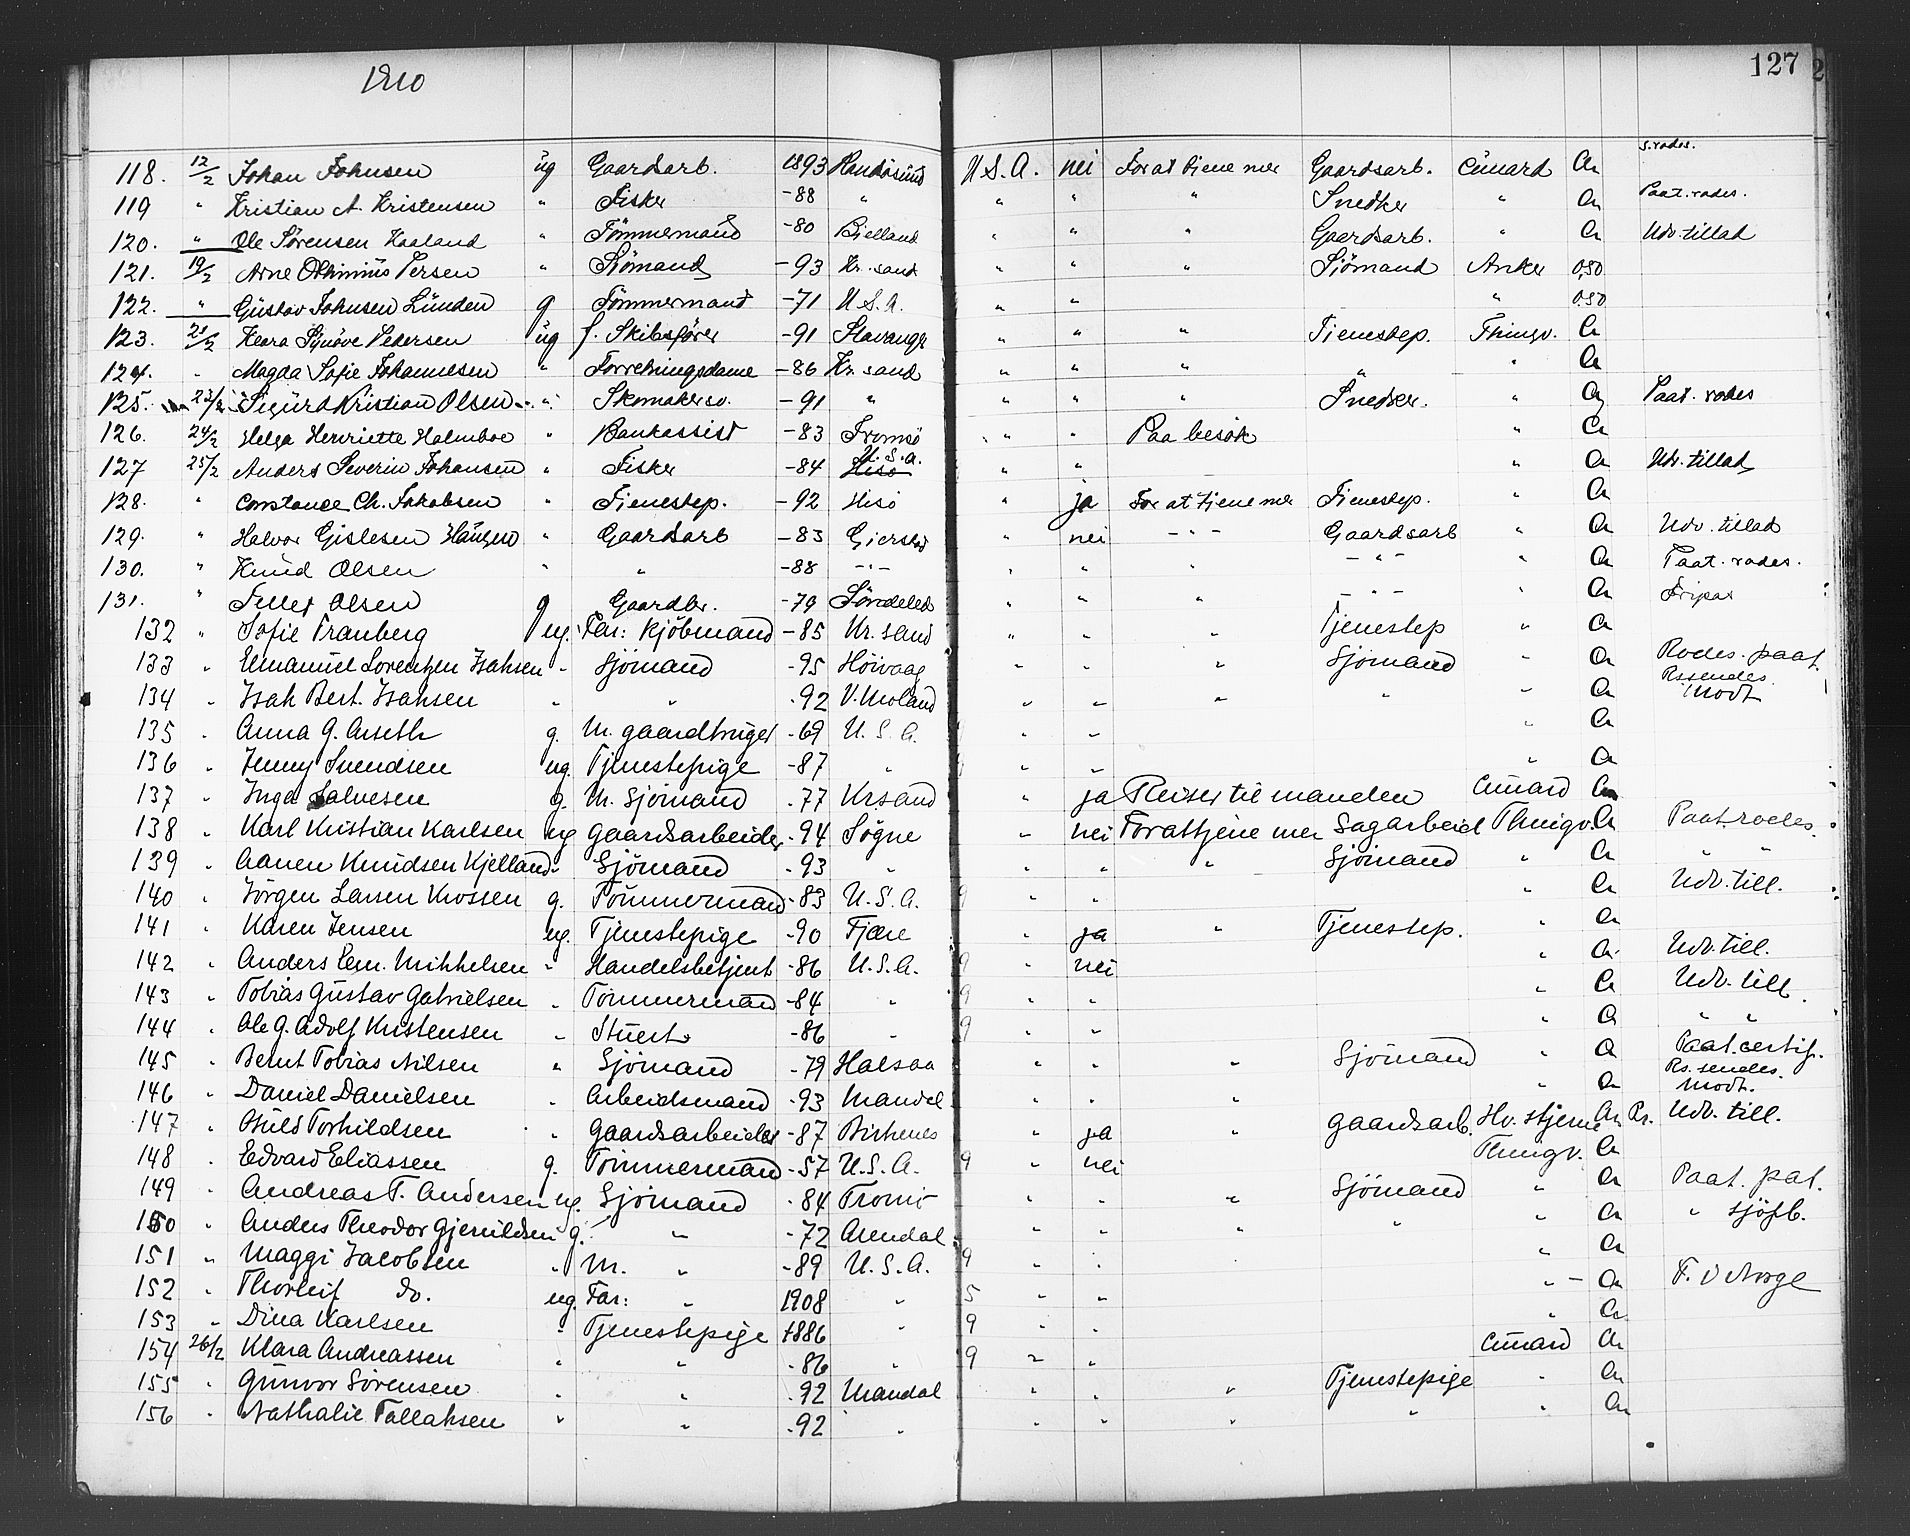 1910
127
118. 12/2 Johan Johnsen ug Gaardsarb. 1893 Randøsund U.S.A. nei For at tjene mer Gaardsarb. Cunard Cr s.rades.
119 " Kristian A. Kristensen " Fisker -88 " " " " Snedker " Cr Paat. rades.
120. " Ole Sørensen Haaland " Tömmermand -80 Bjelland " " " Gaardsarb. " Cr Udv. tillad
121. 19/2 Arne Othinius Tersen " Sjömand -93 Kr. sand " " " Sjömand Anker 0,50
122. " Gustav Johnsen Lunden g Tömmermand -71 U.S.A. " " " 0.50
123. 21/2 Klara Synöve Pedersen ug f. Skibsfører -91 Stavanger " " " Tjenestep. Thingv. Cr
124. " Magda Sofie Johannesen " Forretningsdame -86 Kr. sand " " " " " Cr
125. 23/2 Sigurd Kristian Olsen " Skomakersv. -91 " " " " Snedker. " Cr Paat. rades
126. 24/2 Helga Henriette Holmboe " Bankassist -83 Tromsö " " Paa besök " Cr
127 25/2 Anders Severin Johansen " Fisker -84 Hisö U.S.A. " " " Cr Udv. tillad
128. " Constance Ch. Jakobsen " Tjenestep. -92 Hisö " ja For at tjene mer Tjenestep. " Cr
129. " Halvor Gislesen Haugen " Gaardsarb -83 Gjerstad " nei - " - Gaardsarb " Cr Udv. tillad
130. " Knud Olsen " " -88 - " - " " " - " - " Cr Paat. rades.
131. " Tellef Olsen g Gaardbr. -79 Söndeled " " " - " - " Cr Fripas
132 " Sofie Tranberg ug. Far: Kjöbmand -85 Kr. sand " " " Tjenestep " Cr
133 " Emanuel Lorentzen Isaksen " Sjömand -95 Höivaag " " " Sjömand " Cr Rodes. paat.
134 " Isak Bert. Isaksen " " -92 V. Moland " " " " " Cr Rssendes. Modt
135 " Anna G. Arseth g. M. gaardbruger -69 U.S.A. " " " Cr
136 " Jenny Svendsen ug. Tjenestepige -87 " " " " Cr
137 " Inga Salvesen g. M. Sjömand -77 Krsand " ja Reiser til manden Cunard Cr
138 " Karl Kristian Karlsen ug gaardsarbeider -94 Søgne " nei For at tjene mer Sagarbeid Thingv. Cr Paat. rodes.
139 " Aanen Knudsen Kjelland " Sjömand -93 " " " " Sjömand " Cr " "
140 " Jörgen Larsen Krossen g. Tömmermand -83 U.S.A. 9 " " " Cr Udv. till.
141 " Karen Jensen ug. Tjenestepige -90 Fjære " ja " Tjenestep. " Cr
142 " Anders Em. Mikkelsen " Handelsbetjent -86 U.S.A. 9 " nei " Cr Udv. till.
143 " Tobias Gustav Gabrielsen " Tömmermand -84 " 9 " " " Cr Udv. till.
144 " Ole G. Adolf Kristensen " Stuert -86 " 9 " " " Cr " "
145 " Bernt Tobias Nilsen " Sjömand -79 Halsaa " " " Sjömand " Cr Paat. certif.
146 " Daniel Danielsen " Arbeidsmand -93 Mandal " " " " Cr Rs. sendes. Modt.
147 " Torkildsen " gaardsarbeider -87 Birkenes " ja " gaardsarb. Hv. stjerne Cr Pr. Udv. till.
148 " Edvard Eliassen g. Tömmermand -57 U.S.A. 9 " nei Thingv. Cr
149 " Andreas T. Andersen ug. Sjömand -84 Tromö " " " Sjömand " Cr Paat. pat.
150 " Anders Theodor Gjeruldsen g. " -72 Arendal " " " " " Cr " sjöfb.
151 " Maggi Jacobsen " M. " -89 U.S.A. 9 " " " Cr
152 " Thorleif do. ug. Far: " 1908 " 5 " " " - Cr F. i Norge
153 " Dina Karlsen " Tjenestepige 1886 " 9 " " " Cr
154 26/2 Klara Andreassen " " -86 " 9 " " Cunard Cr
155 " Gunvor Sörensen " " -92 Mandal " " " Tjenestepige " Cr
156 " Nathalie Tallaksen " " -92 " " " " " " Cr